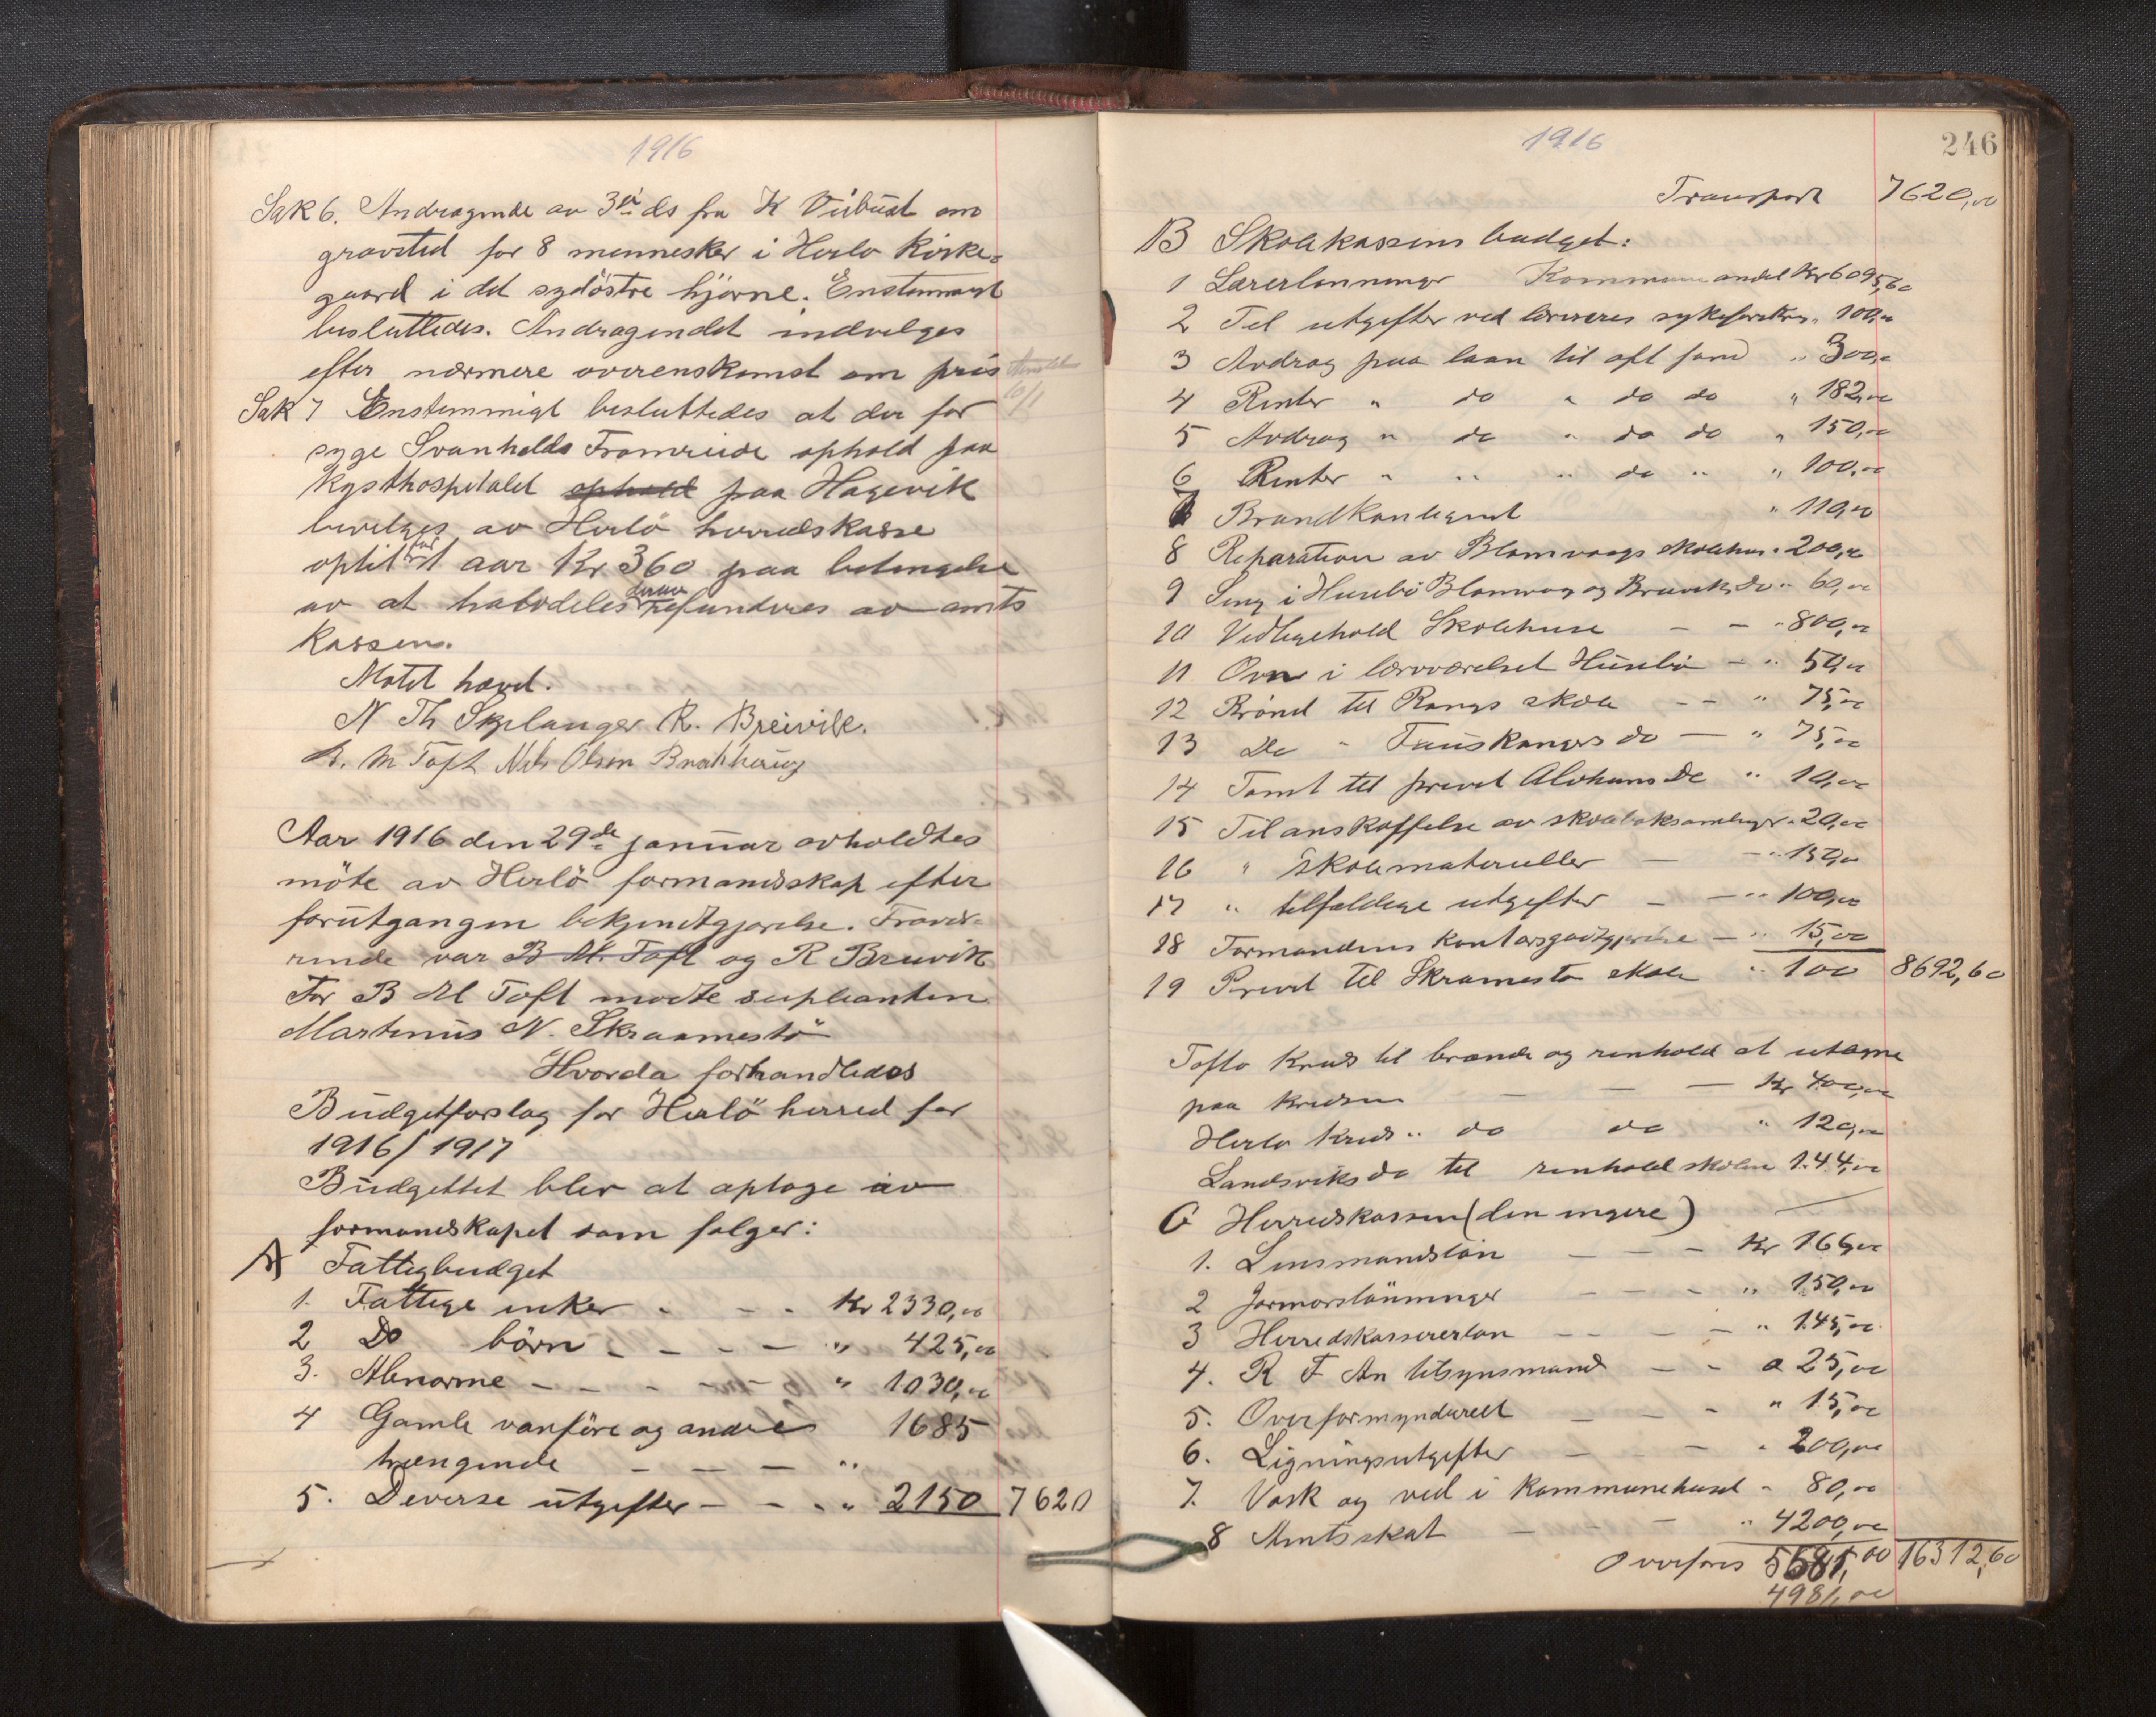 1916
Sak 6. Andragende av 3di ds fra K Viibust om
gravsted for 8 mennesker i Herlo Kirke-
gaard i det sydöstre hjörne. Enstemmigt
besluttedes. Andragendet indvilges
efter nærmere overenskomst om pris
Sak 7 Enstemmigt besluttedes at der for
syge Svanhelds Fromreide ophold paa
Kysthospitalet ophold paa Hagevik
bevilges av Herlö herredskasse
optil for 1 aar Kr 360 paa betingelse
av at halvdelen derav refunderes av amts
kassen.
Mötet hævd.
N Th Skjelanger R. Breivik.
B. M Toft Nils Olsen Brathaug
Aar 1916 den 29de januar avholdtes
möte av Herlö formandsskap efter
forutgangen bekjendtgjørelse. Fravæ-
rende var B M. Toft og R Breivik
For B M Toft møtte supleanten
Martinus N. Skraamestö
Hvorda forhandledes
Budgetforslag for Herlö herred for
1916/1917
Budgettet blev at optage av
formandskapet som følger:
A Fattigbudget
1. Fattige enker - - - Kr 2330,00
2 Do börn - - - - " 425,00
3. Abnorme - - - - - " 1030,00
4 Gamle vanföre og andre 1685
trængende - - - "
5. Diverse utgifter - - - " 2150 7620
1916
246
Transport 7620,00
B Skolekassens budget:
1 Lærerlønninger Kommuneandel Kr 6095,60
2 Til utgifter ved læreres sykeforsikr. " 100,00
3 Avdrag paa laan til oft fond " 300,00
4 Renter " do " do do " 182,00
5 Avdrag " do " do do " 150,00
6 Renter " " " do " " 100,00
7 Brandkontigent " 110,00
8 Reparation av Blomvaags skolehus " 200,00
9 Seng i Husebö Blomvag og Breviks Do " 60,00
10 Vedligehold Skolehuse - - " 800,00
11 Ovn i lærerværelset Husebö - " 50,00
12 Brönd til Rongs skole - - " 75,00
13 Do " Fauskanger do - " 75,00
14 Tomt til privet Alvheims Do " 10,00
15 Til anskaffelse av skoleboksamlinger " 20,00
16 " Skolemateriller - - " 150,00
17 " tilfældige utgifter - - " 100,00
18 Formandens kontorgodtgjørelse - " 15,00
19 Privet til Skramestø skole " 100 8692,60
Tofto Kreds til brænde og renhold at utligne
paa kredsen - - - Kr 400,00
Herlo Kreds " do do " 120,00
Landsviks do til renhold skolen 144,00
C Herredskassen (den engere)
1. Lensmandslön - - - Kr 166,00
2 Jormorslönninger - - - " 150,00
3 Herredskassererløn - - - - " 145,00
4. R F An tilsynsmand - - a 25,00
5. Overformynderiet - - - " 15,00
6. Ligningsutgifter - - " 200,00
7. Vask og ved i Kommunehuset " 80,00
8 Amtsskat - - " 4200,00
Overføres 5681,00 16312,60
4981,00